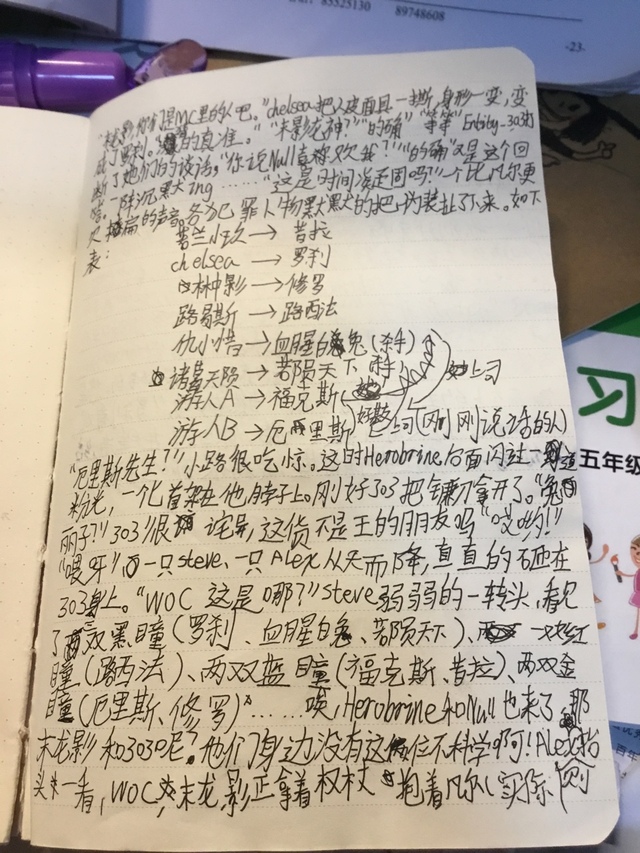 85525130 89748608
-23-
们是MC里的人吧。"chelsea把人皮面具一撕,身形一变,变
成了罗刹。的真准。""末影龙神?""的确""等等"Entity-303打
断了她们的谈话,"你说Null喜欢我?""的确"又是这个回
答。一阵沉默大ing……"这是时间凝固吗?"一个比凡尔更
尺 的声音。各自己 罪人物默默的把伪装扯了下来。如下
表:
兰小 → 昔拉
chelsea → 罗刹
林中影 → 修罗
路易斯 → 路西法
仇小惜 → 血腥白兔(杀手)
诸葛天陨 → 若陨天下 上司
游人A → 福克斯
游人B → 厄里斯 上司(刚刚说话的人)
"厄里斯先生?"小路很吃惊。这时Herobrine后面闪过一道
粉光,一个匕首架在他脖子上。刚好303把镰刀拿开了。"兔
丽子?"303很诧异,这货不是王的朋友吗"哎哟!"
"喂呀"一只steve、一只Alex从天而降,直直的砸在
303身上。"WOC 这是哪?"steve弱弱的一转头,看见
了 双黑瞳(罗刹、血腥白兔、若陨天下)、一双红
瞳(路西法)、两双蓝瞳(福克斯、昔拉)、两双金
瞳(厄里斯、修罗)……唉,Herobrine和Null也来了,那
末龙影和303呢?他们身边没有这位不科学啊!Alex抬
头一看,WOC,末龙影正拿着权杖抱着凡尔(实际
习
五年级